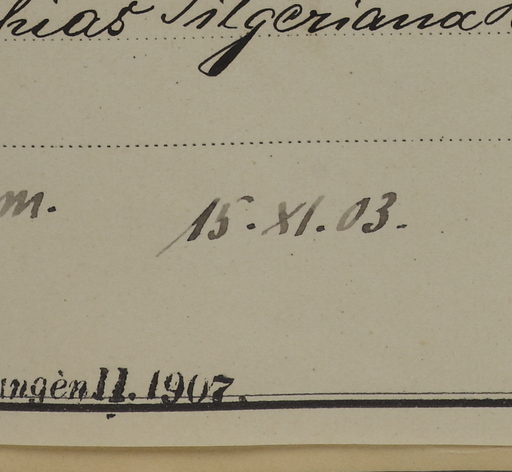 hias Pilgeriana
m. 15. XI. 03.
ungèn II. 1907.